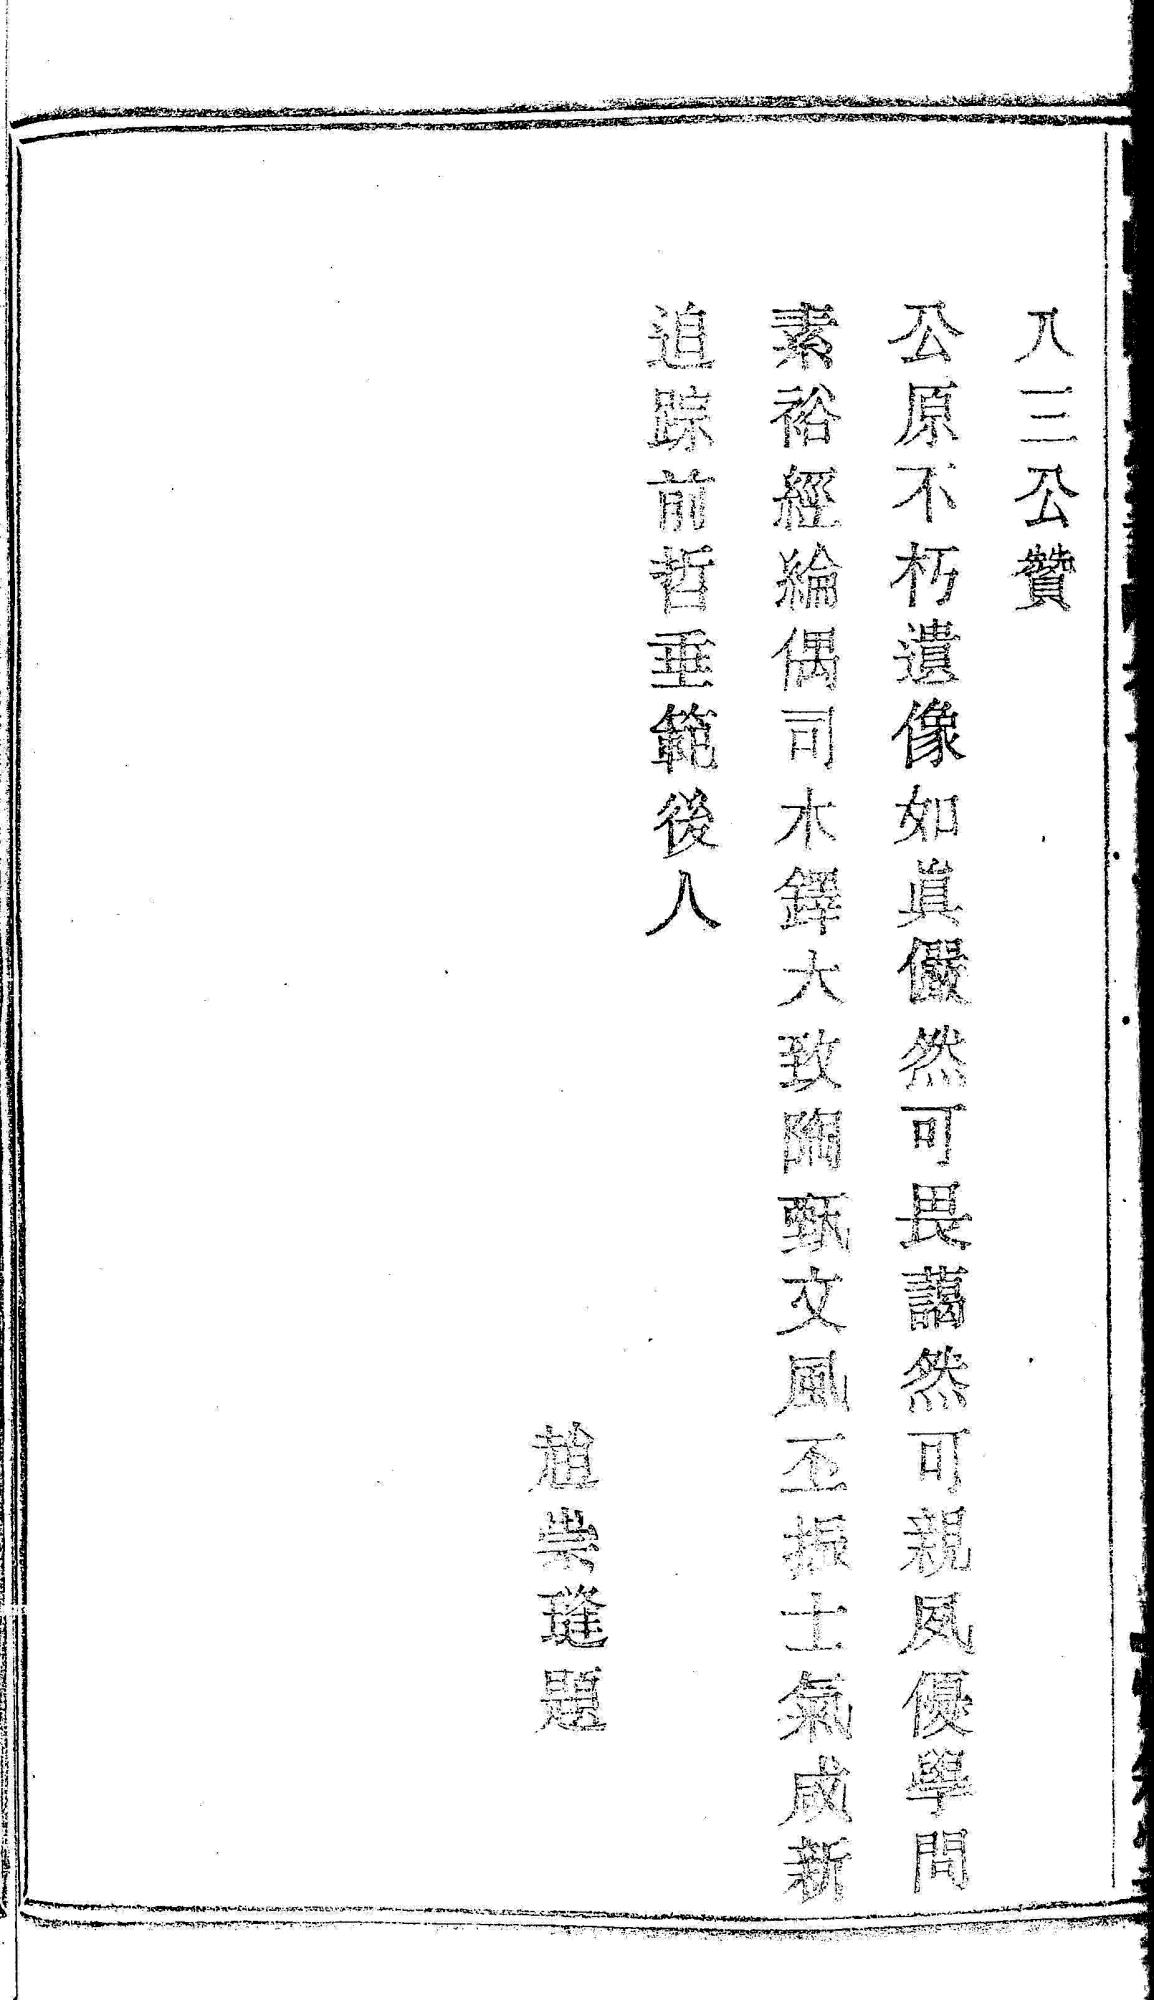 八三公贊
公原不朽遺像如真儼然可畏藹然可親夙優學問
素裕經綸偶司木鐸大致陶甄文風丕振士氣咸新
追踪前哲垂範後人
趙崇瑝題